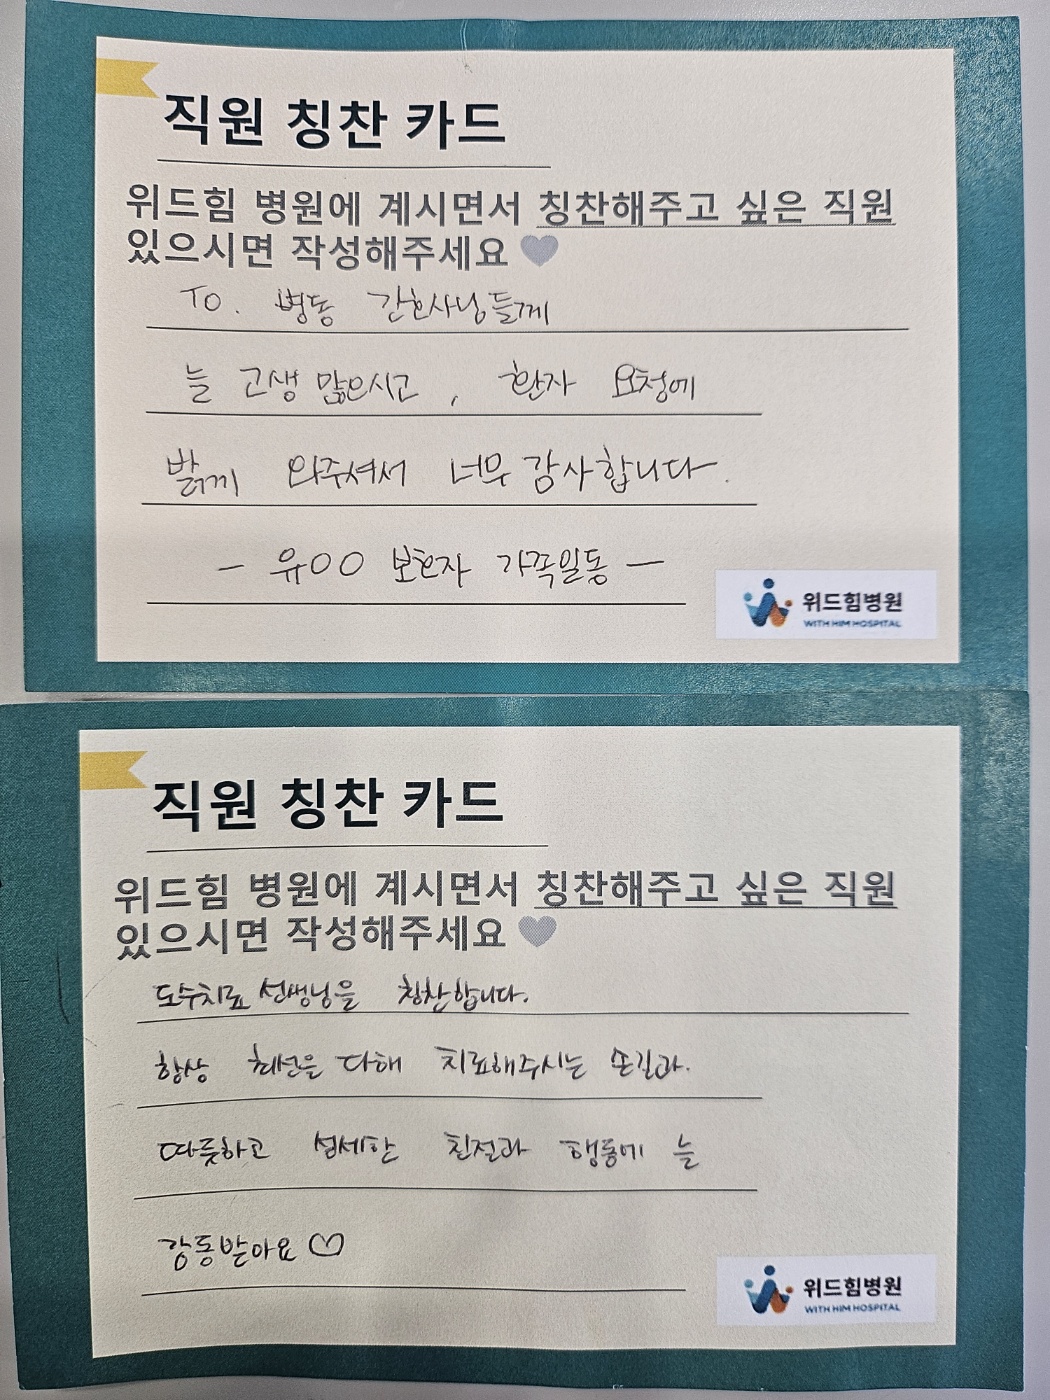 직원 칭찬 카드
위드힘 병원에 계시면서 칭찬해주고 싶은 직원
있으시면 작성해주세요
To. 병동 간호사님들께
늘 고생 많으시고, 환자 요청에
밝게 와주셔서 너무 감사합니다.
- 유○○ 보호자 가족일동 -
위드힘병원
WITH HIM HOSPITAL
직원 칭찬 카드
위드힘 병원에 계시면서 칭찬해주고 싶은 직원
있으시면 작성해주세요
도수치료 선생님을 칭찬합니다.
항상 최선을 다해 치료해주시는 손길과.
따뜻하고 섬세한 친절과 행동에 늘
감동받아요♡
위드힘병원
WITH HIM HOSPITAL